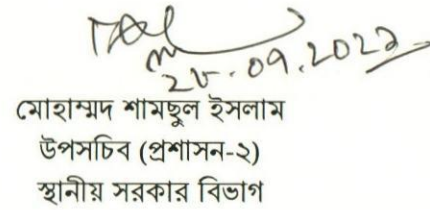 .09.202২
মোহাম্মদ শামছুল ইসলাম
উপসচিব (প্রশাসন-২)
স্থানীয় সরকার বিভাগ